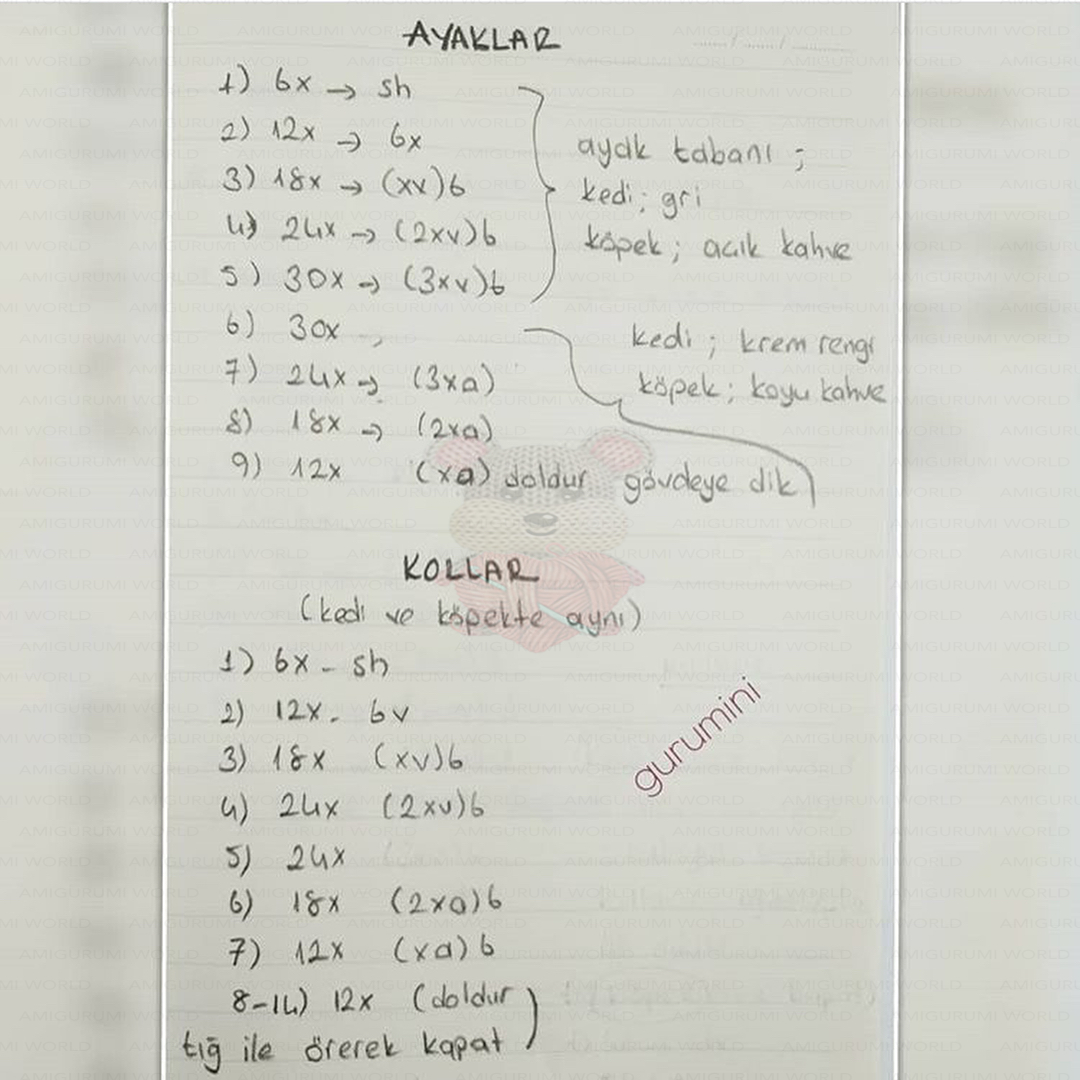 AYAKLAR
1) 6x → sh
2) 12x → 6x
3) 18x → (xv)6
4) 24x → (2xv)6
5) 30x → (3xv)6
ayak tabanı ;
kedi; gri
köpek; acık kahve
6) 30x →
7) 24x → (3xa)
8) 18x → (2xa)
9) 12x (xa) doldur gövdeye dik
kedi ; krem rengi
köpek; koyu kahve
KOLLAR
(kedi ve köpekte aynı)
1) 6x - sh
2) 12x - 6v
3) 18x (xv)6
4) 24x (2xv)6
5) 24x
6) 18x (2xa)6
7) 12x (xa)6
8-14) 12x (doldur
tığ ile örerek kapat )
gurumini
AMIGURUMI WORLD